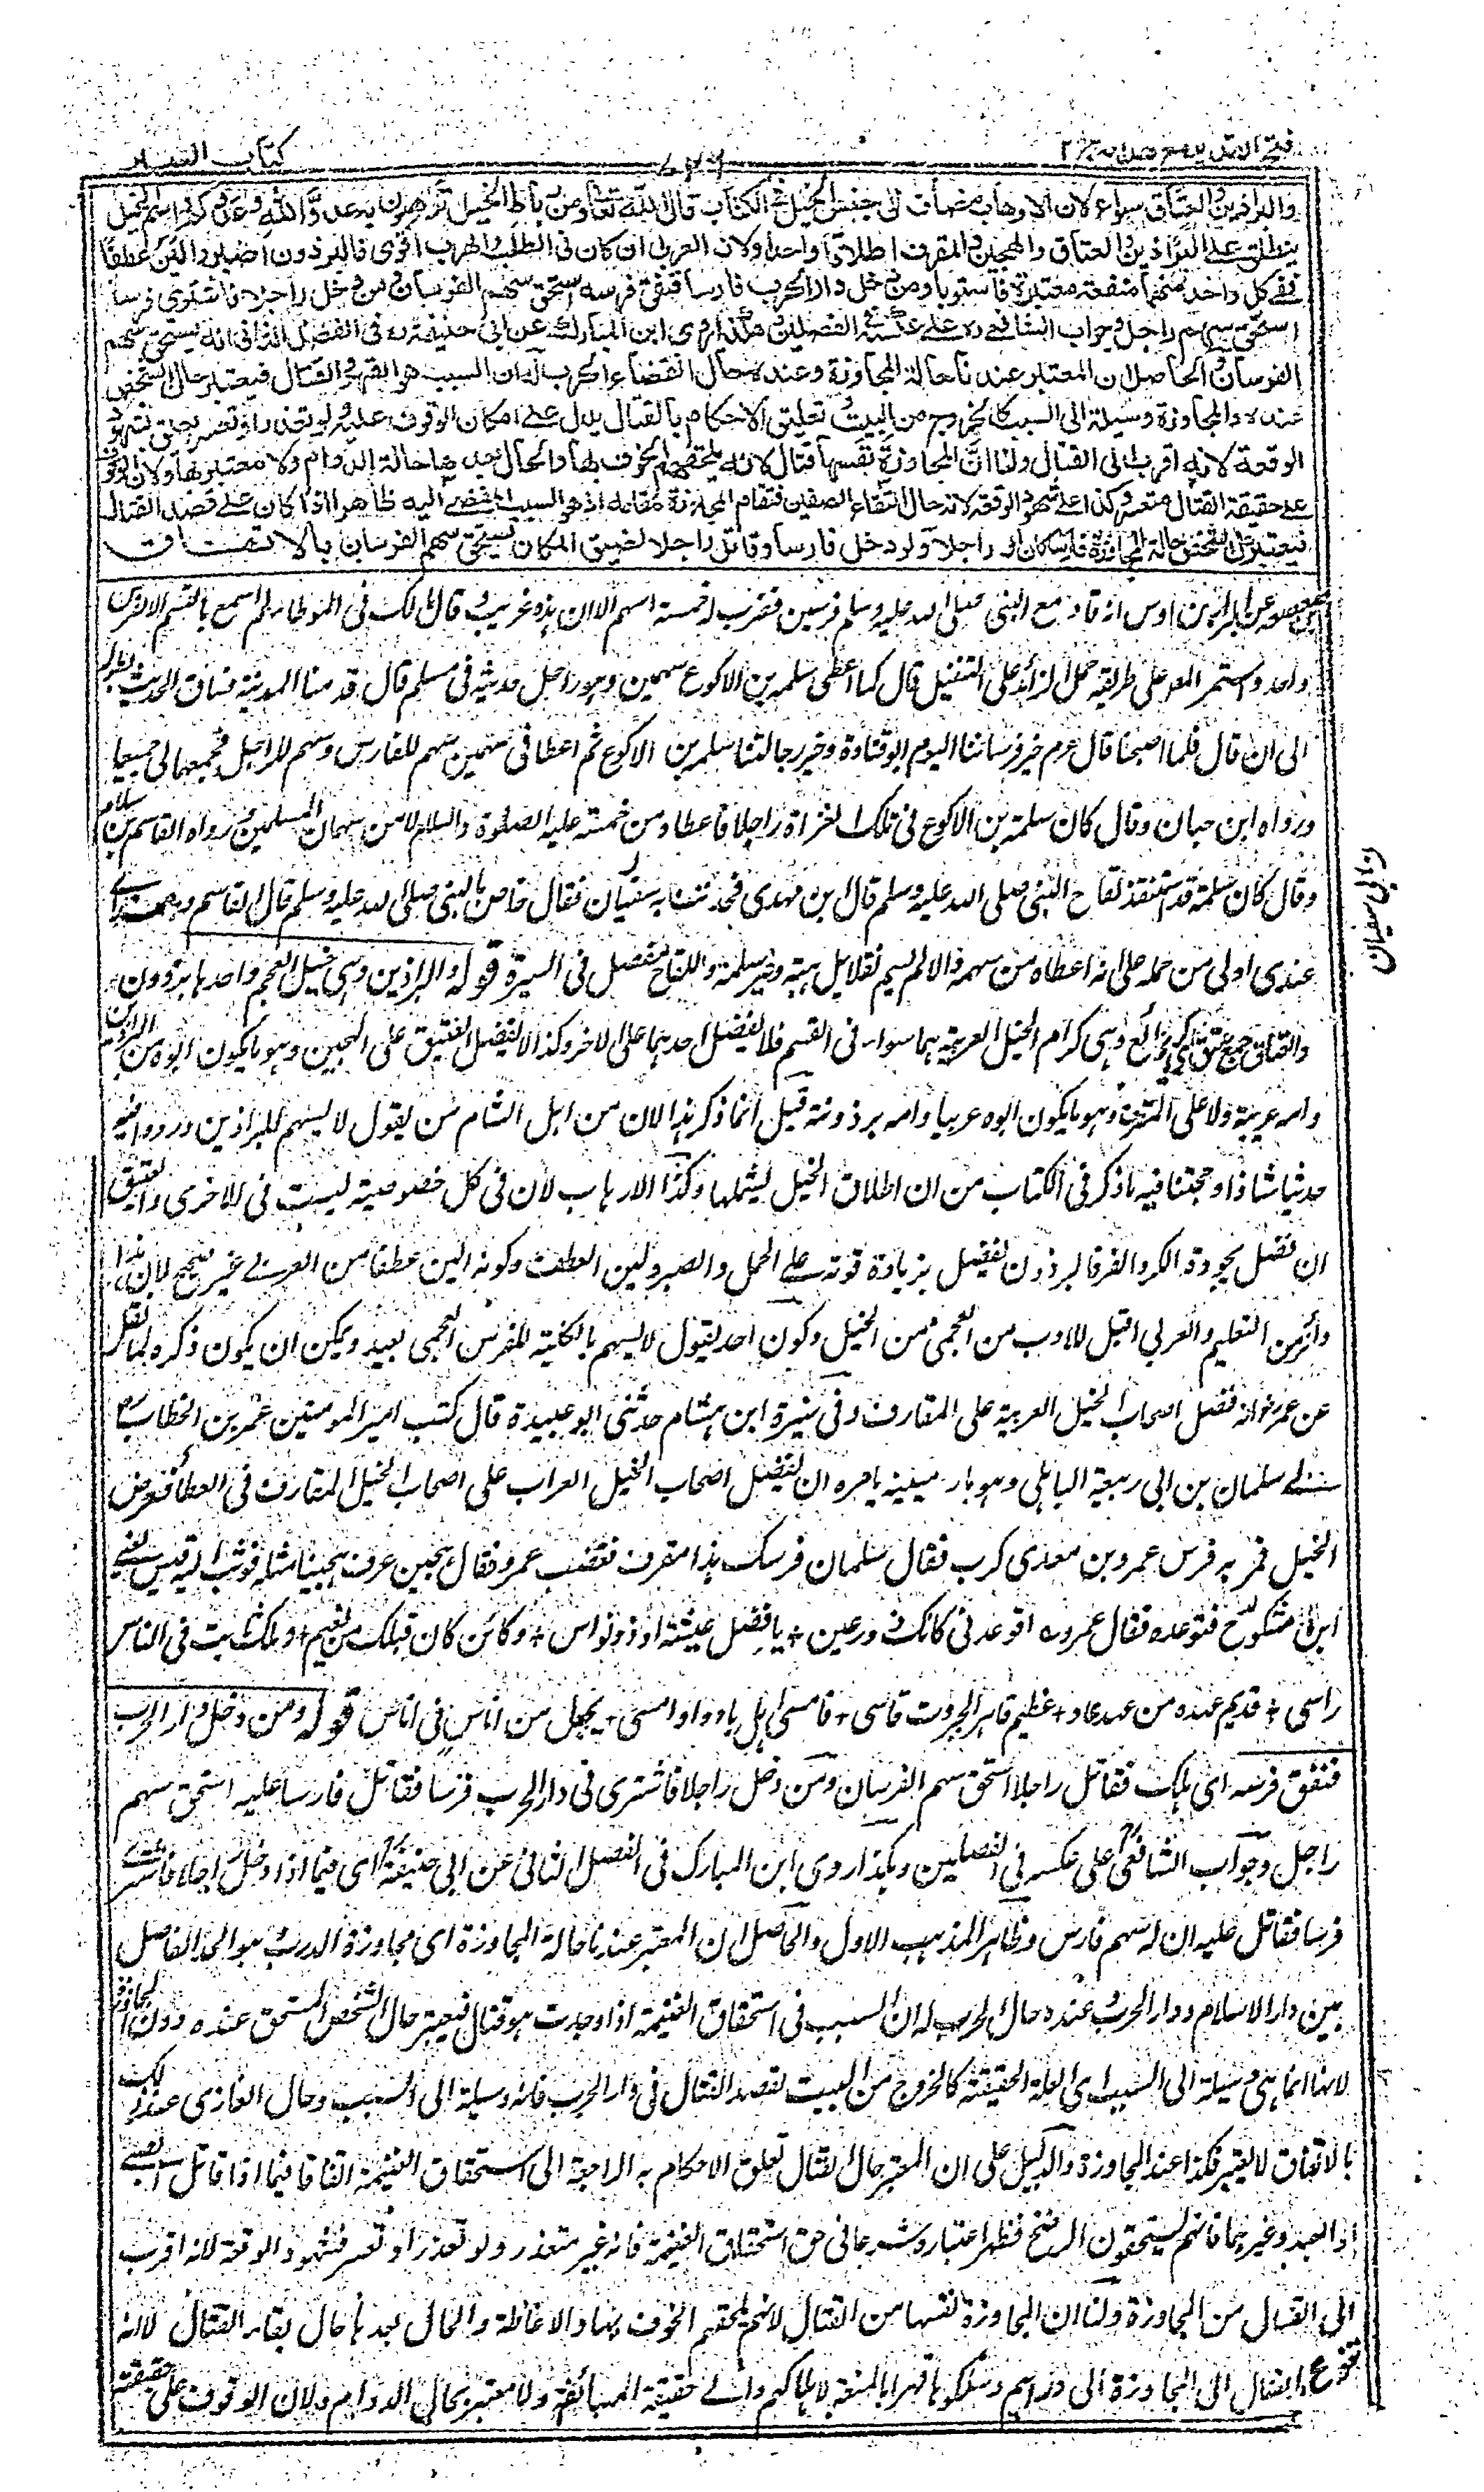 فتح القدير مع هداية ج ٢
كتاب السير
والبراذين والعتاق سواء لان الارهاب مضاف الى جنس الخيل في الكتاب قال الله تعالى ومن رباط الخيل ترهبون به عدو الله وعدوكم واسم الخيل
ينطلق على البراذين والعتاق والهجين والمقرف اطلاقا واحدا ولان العربي ان كان في الطلب والهرب اقوى فالبرذون اصبر والين عطفا
ففي كل واحد منهما منفعة معتبرة فاستويا ومن دخل دار الحرب فارسا فنفق فرسه استحق سهم الفرسان ومن دخل راجلا فاشترى فرسا
استحق سهم راجل وجواب الشافعي ره على عكسه في الفصلين وهكذا روى ابن المبارك عن ابي حنيفة ره في الفصل الثاني انه يستحق سهم
الفرسان والحاصل ان المعتبر عندنا حالة المجاوزة وعنده حال انقضاء الحرب له ان السبب هو القهر والقتال فيعتبر حال الشخص
عنده والمجاوزة وسيلة الى السبب كالخروج من البيت وتعليق الاحكام بالقتال يدل على امكان الوقوف عليه ولو تعذر او تعسر يعلق بشهود
الوقعة لانه اقرب الى القتال ولنا ان المجاوزة نفسها قتال لانه يلحقهم الخوف بها والحال بعدها حالة الدوام ولا معتبر بها ولان الوقوف
على حقيقة القتال متعسر وكذا على شهود الوقعة لانه حال التقاء الصفين فتقام المجاوزة مقامه اذ هو السبب المفضي اليه ظاهرا اذا كان على قصد القتال
فيعتبر حال الشخص حالة المجاوزة فارسا كان او راجلا ولو دخل فارسا وقاتل راجلا لضيق المكان يستحق سهم الفرسان بالاتفاق
اوس انه قاد مع النبي صلى الله عليه وسلم فرسين فضرب له خمسة اسهم الا ان هذه غريب وقال مالك في الموطا لم اسمع بالقسم الا لفرس
واحد واستمر المصـ على طريقة حمل الزائد على التنفيل قال كما اعطى سلمة بن الاكوع سهمين وهو راجل حديثه في مسلم قال قدمنا المدينة فساق الحديث بطوله
الى ان قال فلما اصبحنا قال عم خير فرساننا اليوم ابو قتادة وخير رجالتنا سلمة بن الاكوع ثم اعطاني سهمين سهم للفارس وسهم للراجل فجمعهما لي جميعا
ورواه ابن حبان وقال كان سلمة بن الاكوع في تلك الغزاة راجلا فاعطاه من خمسه عليه الصلوة والسلام لا من سهمان المسلمين ورواه القاسم بن سلام
وقال كان سلمة قد استنقذ لقاح النبي صلى الله عليه وسلم قال ابن مهدي فحدثت به سفيان فقال خاص بالنبي صلى الله عليه وسلم قال القاسم وهذا
عندي اولى من حمله على انه اعطاه من سهمه والا لم يسم نفلا بل هبة وخبر سلمة واللقاح مفصل في السيرة قوله والبراذين وهي خيل العجم واحدها برذون
والعتاق جمع عتيق اي كريم رائع وهي كرام الخيل العربية هما سواء في القسم فلا يفضل احدهما على الاخر وكذا لا يفضل العتيق على الهجين وهو ما يكون ابوه من البراذين
وامه عربية ولا على المقرف وهو ما يكون ابوه عربيا وامه برذونة قيل انما ذكر هذا لان من اهل الشام من يقول لا يسهم للبراذين ورووا فيه
حديثا شاذا وحجتنا فيه ما ذكر في الكتاب من ان اطلاق الخيل يشملها وكذا الارهاب لان في كل خصوصية ليست في الاخرى والعتيق
ان فضل بجودة الكر والفر فالبرذون يفضل بزيادة قوته على الحمل والصبر ولين العطف وكونه الين عطفا من العربي غير صحيح لان هذا
دائر من التعليم والعربي اقبل للادب من العجمي من الخيل وكون احد يقول لا يسهم بالكلية للفرس العجمي بعيد ويمكن ان يكون ذكره لما نقل
عن عمر رض انه فضل اصحاب الخيل العربية على المقارف وفي سيرة ابن هشام حدثني ابو عبيدة قال كتب امير المومنين عمر بن الخطاب رض
الى سلمان بن ابي ربيعة الباهلي وهو بارمينية يامره ان يفضل اصحاب الخيل العراب على اصحاب الخيل المقارف في العطاء فعرض
الخيل فمر به فرس عمرو بن معدي كرب فقال سلمان فرسك هذا مقرف فغضب عمرو فقال هجين عرف هجينا مثله فوثب اليه قيس يعني
ابن مكشوح فتوعده فقال عمرو ه اتوعدني كانك ذو رعين + بافضل عيشة او ذو نواس + وكائن كان قبلك من نعيم + وملك ثابت في الناس
راسي + قديم عهده من عهد عاد + عظيم قاهر الجبروت قاسي + فامسى اهله بادوا وامسى + يحول من اناس في اناس قوله ومن دخل دار الحرب
فنفق فرسه اي هلك فقاتل راجلا استحق سهم الفرسان ومن دخل راجلا فاشترى في دار الحرب فرسا فقاتل فارسا عليه استحق سهم
راجل وجواب الشافعي على عكسه في الفصلين وهكذا روى ابن المبارك في الفصل الثاني عن ابي حنيفة اي فيما اذا دخل راجلا فاشترى
فرسا فقاتل عليه ان له سهم فارس وظاهر المذهب الاول والحاصل ان المعتبر عندنا حالة المجاوزة اي مجاوزة الدرب هو الحد الفاصل
بين دار الاسلام ودار الحرب وعنده حال الحرب له ان السبب في استحقاق الغنيمة اذا وجدت هو قتال فيعتبر حال الشخص المستحق عنده دون المجاوزة
لانها انما هي وسيلة الى السبب اي العلة الحقيقة كالخروج من البيت لقصد القتال في دار الحرب فانه وسيلة الى السبب وحال الغازي عند ذلك
بالاتفاق لا يعتبر فكذا عند المجاوزة والدليل على ان المعتبر حال القتال تعلق الاحكام به الراجعة الى استحقاق الغنيمة اتفاقا فيما اذا قاتل الصبي
او العبد وغيرهما فانهم يستحقون الرضخ فظهر اعتباره شرعا في حق استحقاق الغنيمة فانه غير متعذر ولو تعذر او تعسر فشهود الوقعة لانه اقرب
الى القتال من المجاوزة ولنا ان المجاوزة نفسها من القتال لانهم يلحقهم الخوف بها والاغاظة والحال بعدها حال بقاء القتال لانه
القتال الى المجاوزة الى دارهم وسلوكها قهرا بالمنعة والى حقيقة المسايفة ولا معتبر بحال الدوام ولان الوقوف على حقيقة